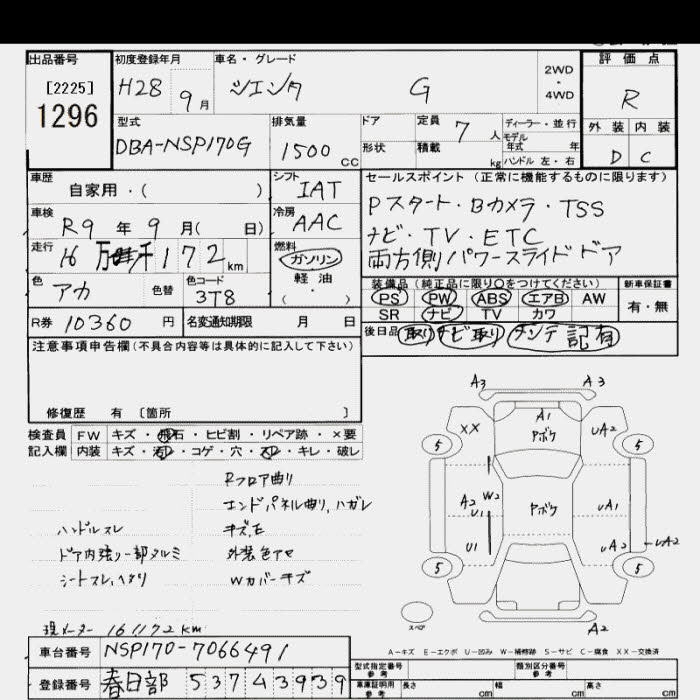 出品番号 初度登録年月 車名・グレード 評価点
[2225] H28 9月 シエンタ G 2WD・4WD R
1296
型式 排気量 ドア 定員 7人 ディーラー・並行 外装 内装
モデル年式 年
DBA-NSP170G 1500CC 形状 積載 kg ハンドル 左・右 D C
車歴 自家用・( ) シフト IAT セールスポイント (正常に機能するものに限ります)
車検 R9年9月( 日) 冷房 AAC Pスタート・Bカメラ・TSS
走行 16万千172km 燃料 ガソリン ナビ・TV・ETC
軽油 両方側パワースライドドア
色 アカ 色替 色コード 3T8 ・( )
装備品 (純正品に限り○をつけてください) 新車保証書
PS PW ABS エアB AW 有・無
SR ナビ TV カワ
R券 10360円 名変通知期限 月 日
後日品 取り ナビ取り 記有
注意事項申告欄(不具合内容等は具体的に記入して下さい)
修復歴 有 [箇所 ]
検査員 FW キズ・飛石・ヒビ割・リペア跡・×要
記入欄 内装 キズ・汚レ・コゲ・穴・スレ・キレ・破レ
Rフロア曲り
エンドパネル曲り,ハガレ
ハンドルスレ キズ,E
ドア内張リ一部タルミ 外装色アセ
シートスレ,ヘタリ Wカバーキズ
A3 A3
XX A1 UA2
アボケ
5 5
A2 W2 アボケ UA1
U1
U1 UA2 UA2
5 5
スペア
A2
現メーター 161172km
A-キズ E-エクボ U-凹み W-補修跡 S-サビ C-腐食 XX-交換済
車台番号 NSP170-7066491
型式指定番号 参考 類別区分番号 参考
登録番号 春日部 537 4 3939
車庫証明用 参考 長さ cm 幅 cm 高さ cm